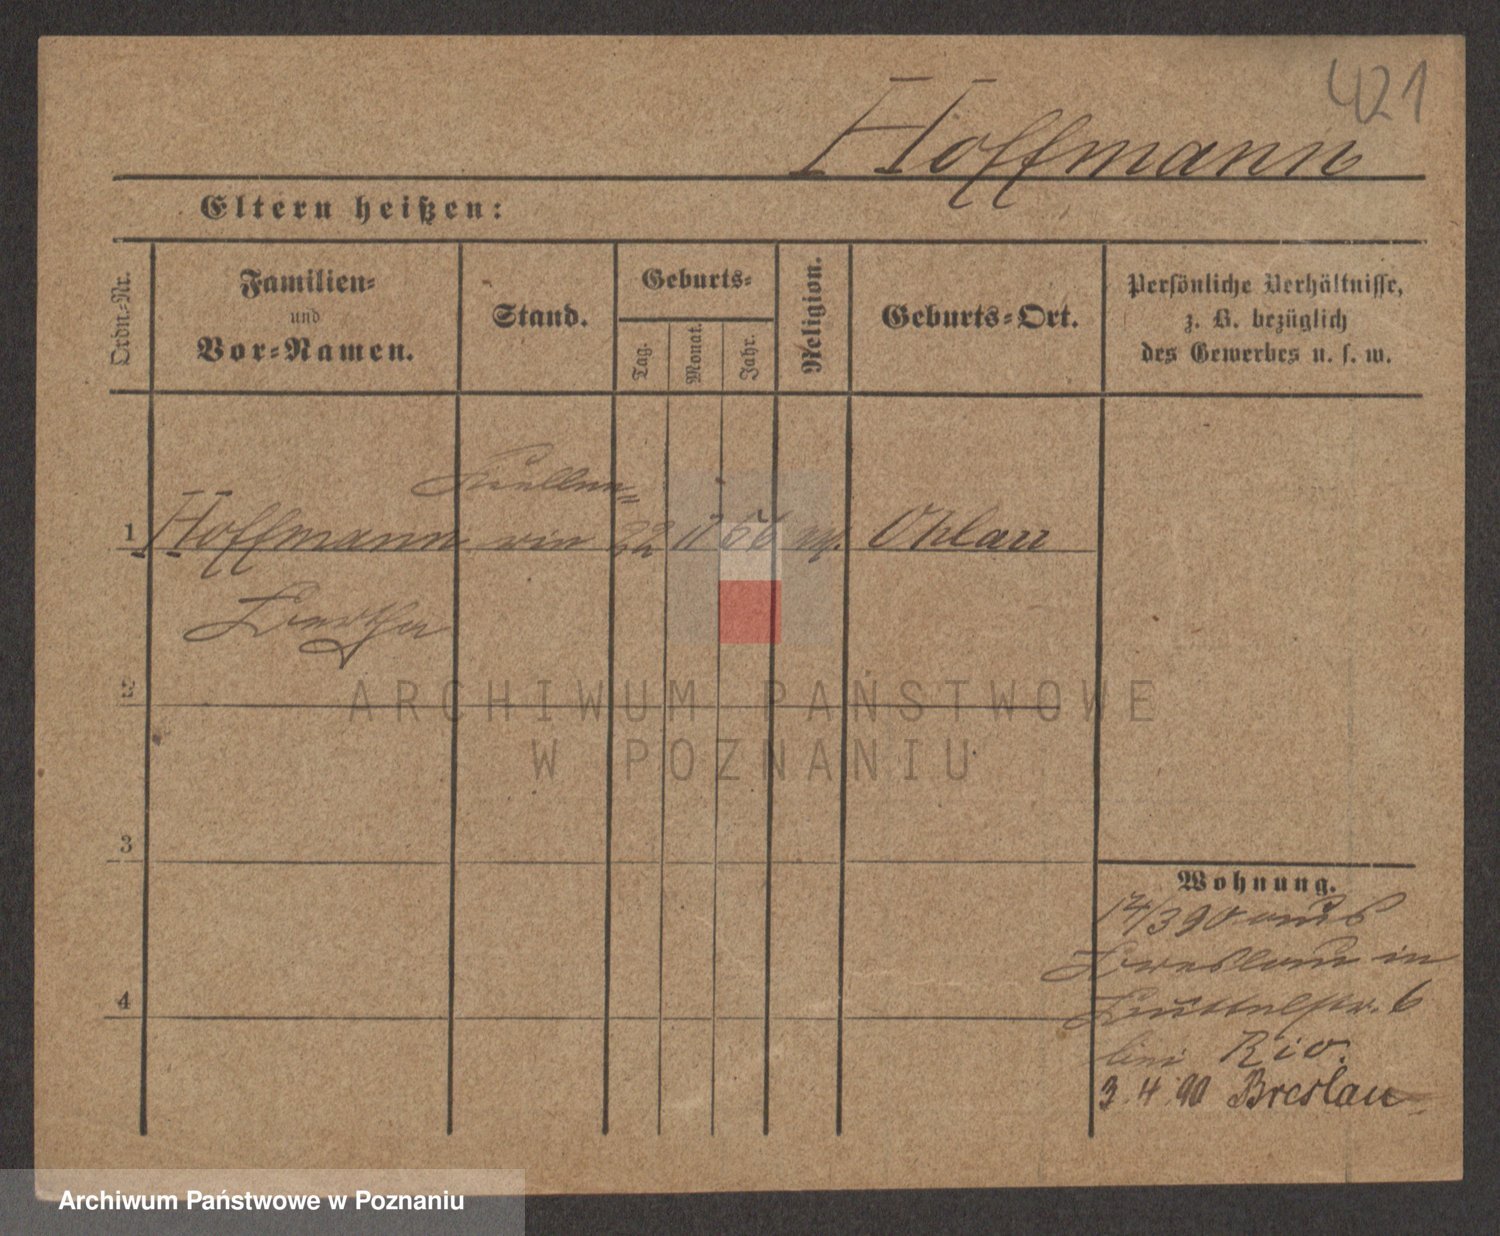 421
Hoffmann
Eltern heißen:
Ordn.-Nr.
Familien-
und
Vor-Namen.
Stand.
Geburts-
Tag.
Monat.
Jahr.
Religion.
Geburts-Ort.
Persönliche Verhältnisse,
z. B. bezüglich
des Gewerbes u. s. w.
Kellne-
1 Hoffmann rin 22 11 66 Ohlau
Bertha
2
ARCHIWUM PAŃSTWOWE
W POZNANIU
3
Wohnung.
14/3 90 aus
Breslau in
4
6
bei Rio.
3.4.90 Breslau
Archiwum Państwowe w Poznaniu